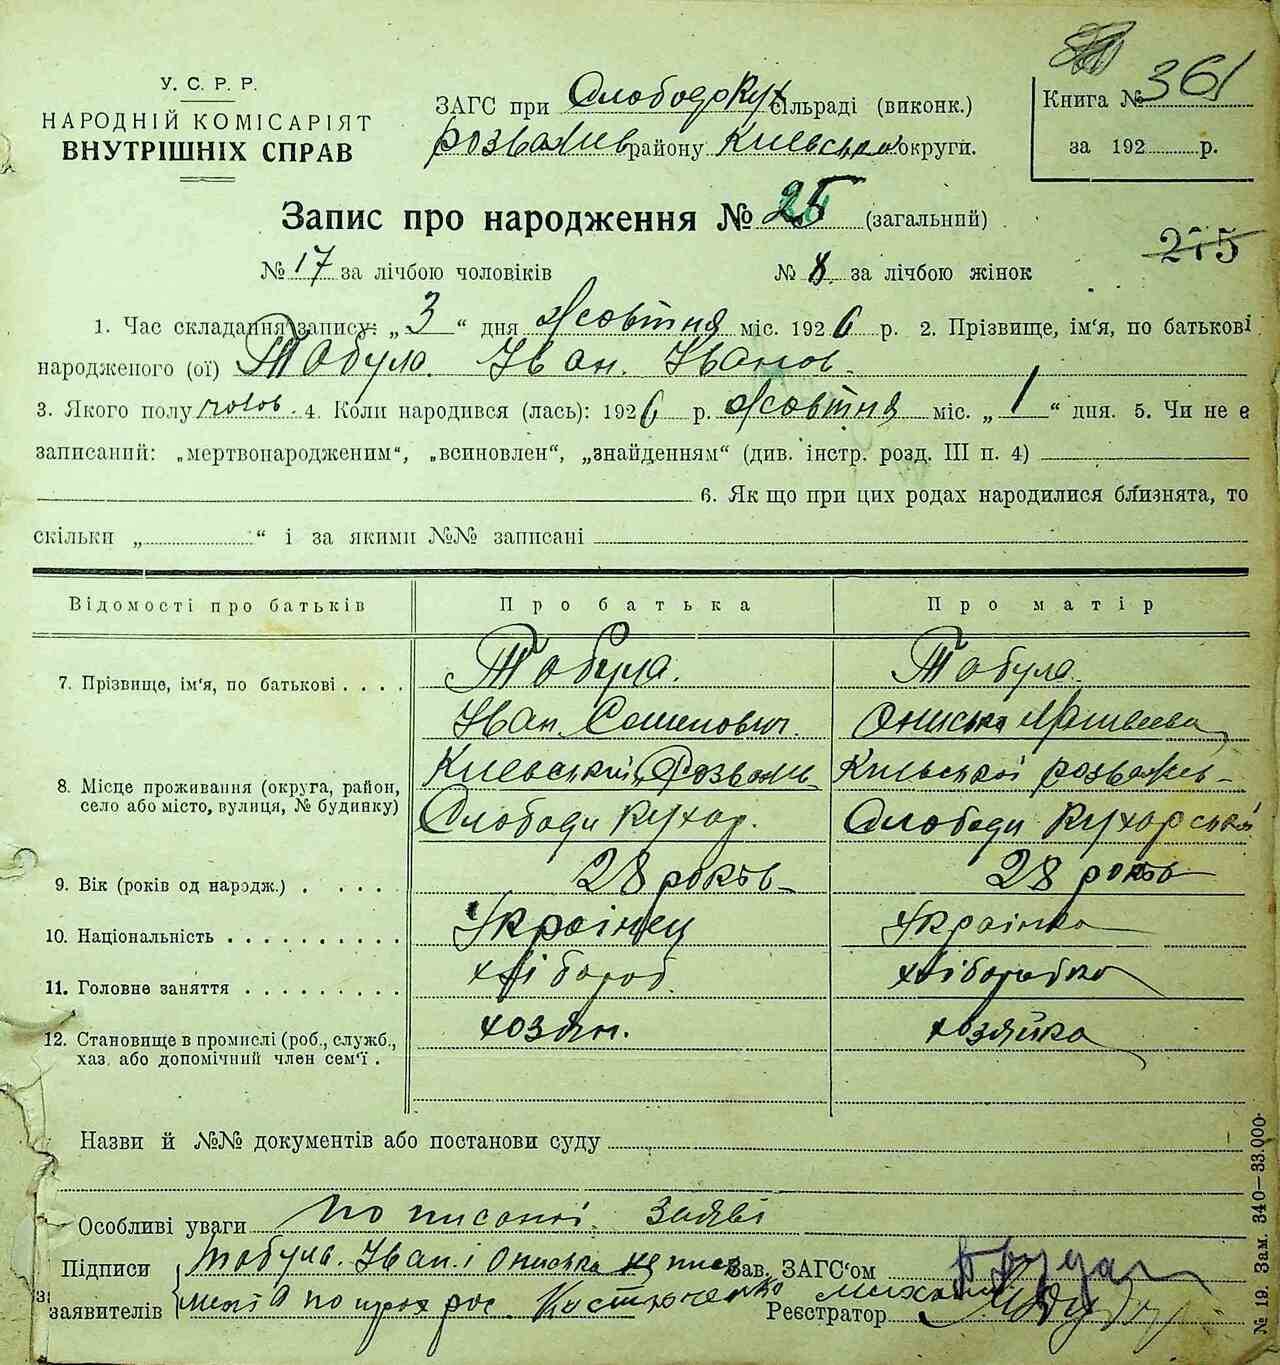 У. С. Р. Р.
НАРОДНІЙ КОМІСАРІЯТ
ВНУТРІШНІХ СПРАВ
ЗАГС при СлободоКух сільраді (виконк.)
розважив району Київсько округи.
Книга № 361
за 192 р.
Запис про народження № 25 (загальний)
275
№ 17 за лічбою чоловіків № 8 за лічбою жінок
1. Час складання запису: „ 3 “ дня жовтня міс. 192 6 р. 2. Прізвище, ім'я, по батькові
народженого (ої) Табула. Іван. Іванов.
3. Якого полу чолов. 4. Коли народився (лась): 192 6 р. жовтня міс. „ 1 “ дня. 5. Чи не е
записаний: „мертвонародженим“, „всиновлен“, „знайденням“ (див. інстр. розд. III п. 4)
6. Як що при цих родах народилися близнята, то
скільки „ “ і за якими №№ записані
Відомості про батьків Про батька Про матір
7. Прізвище, ім'я, по батькові . . . . Табула. Табула.
Іван. Семенович. Ониська
Київський, Розважив Київської розважев-
8. Місце проживання (округа, район,
село або місто, вулиця, № будинку) Слободи Кухар. Слободи Кухарська
9. Вік (років од народж.) . . . . . 28 роков 28 роков
10. Національність . . . . . . . . . . Українец Українка
11. Головне заняття . . . . . . . . . хлібороб. хліборобка
12. Становище в промислі (роб., службі., хозяін. хозяйка
хаз. або допомічний член сем'ї .
Назви й №№ документів або постанови суду
Особливі уваги по писаної заяві
Підписи Табула. Іван. і Ониська не Зав. ЗАГС'ом
заявителів Костюченко Реєстратор
№ 19. Зам. 340—33.000.